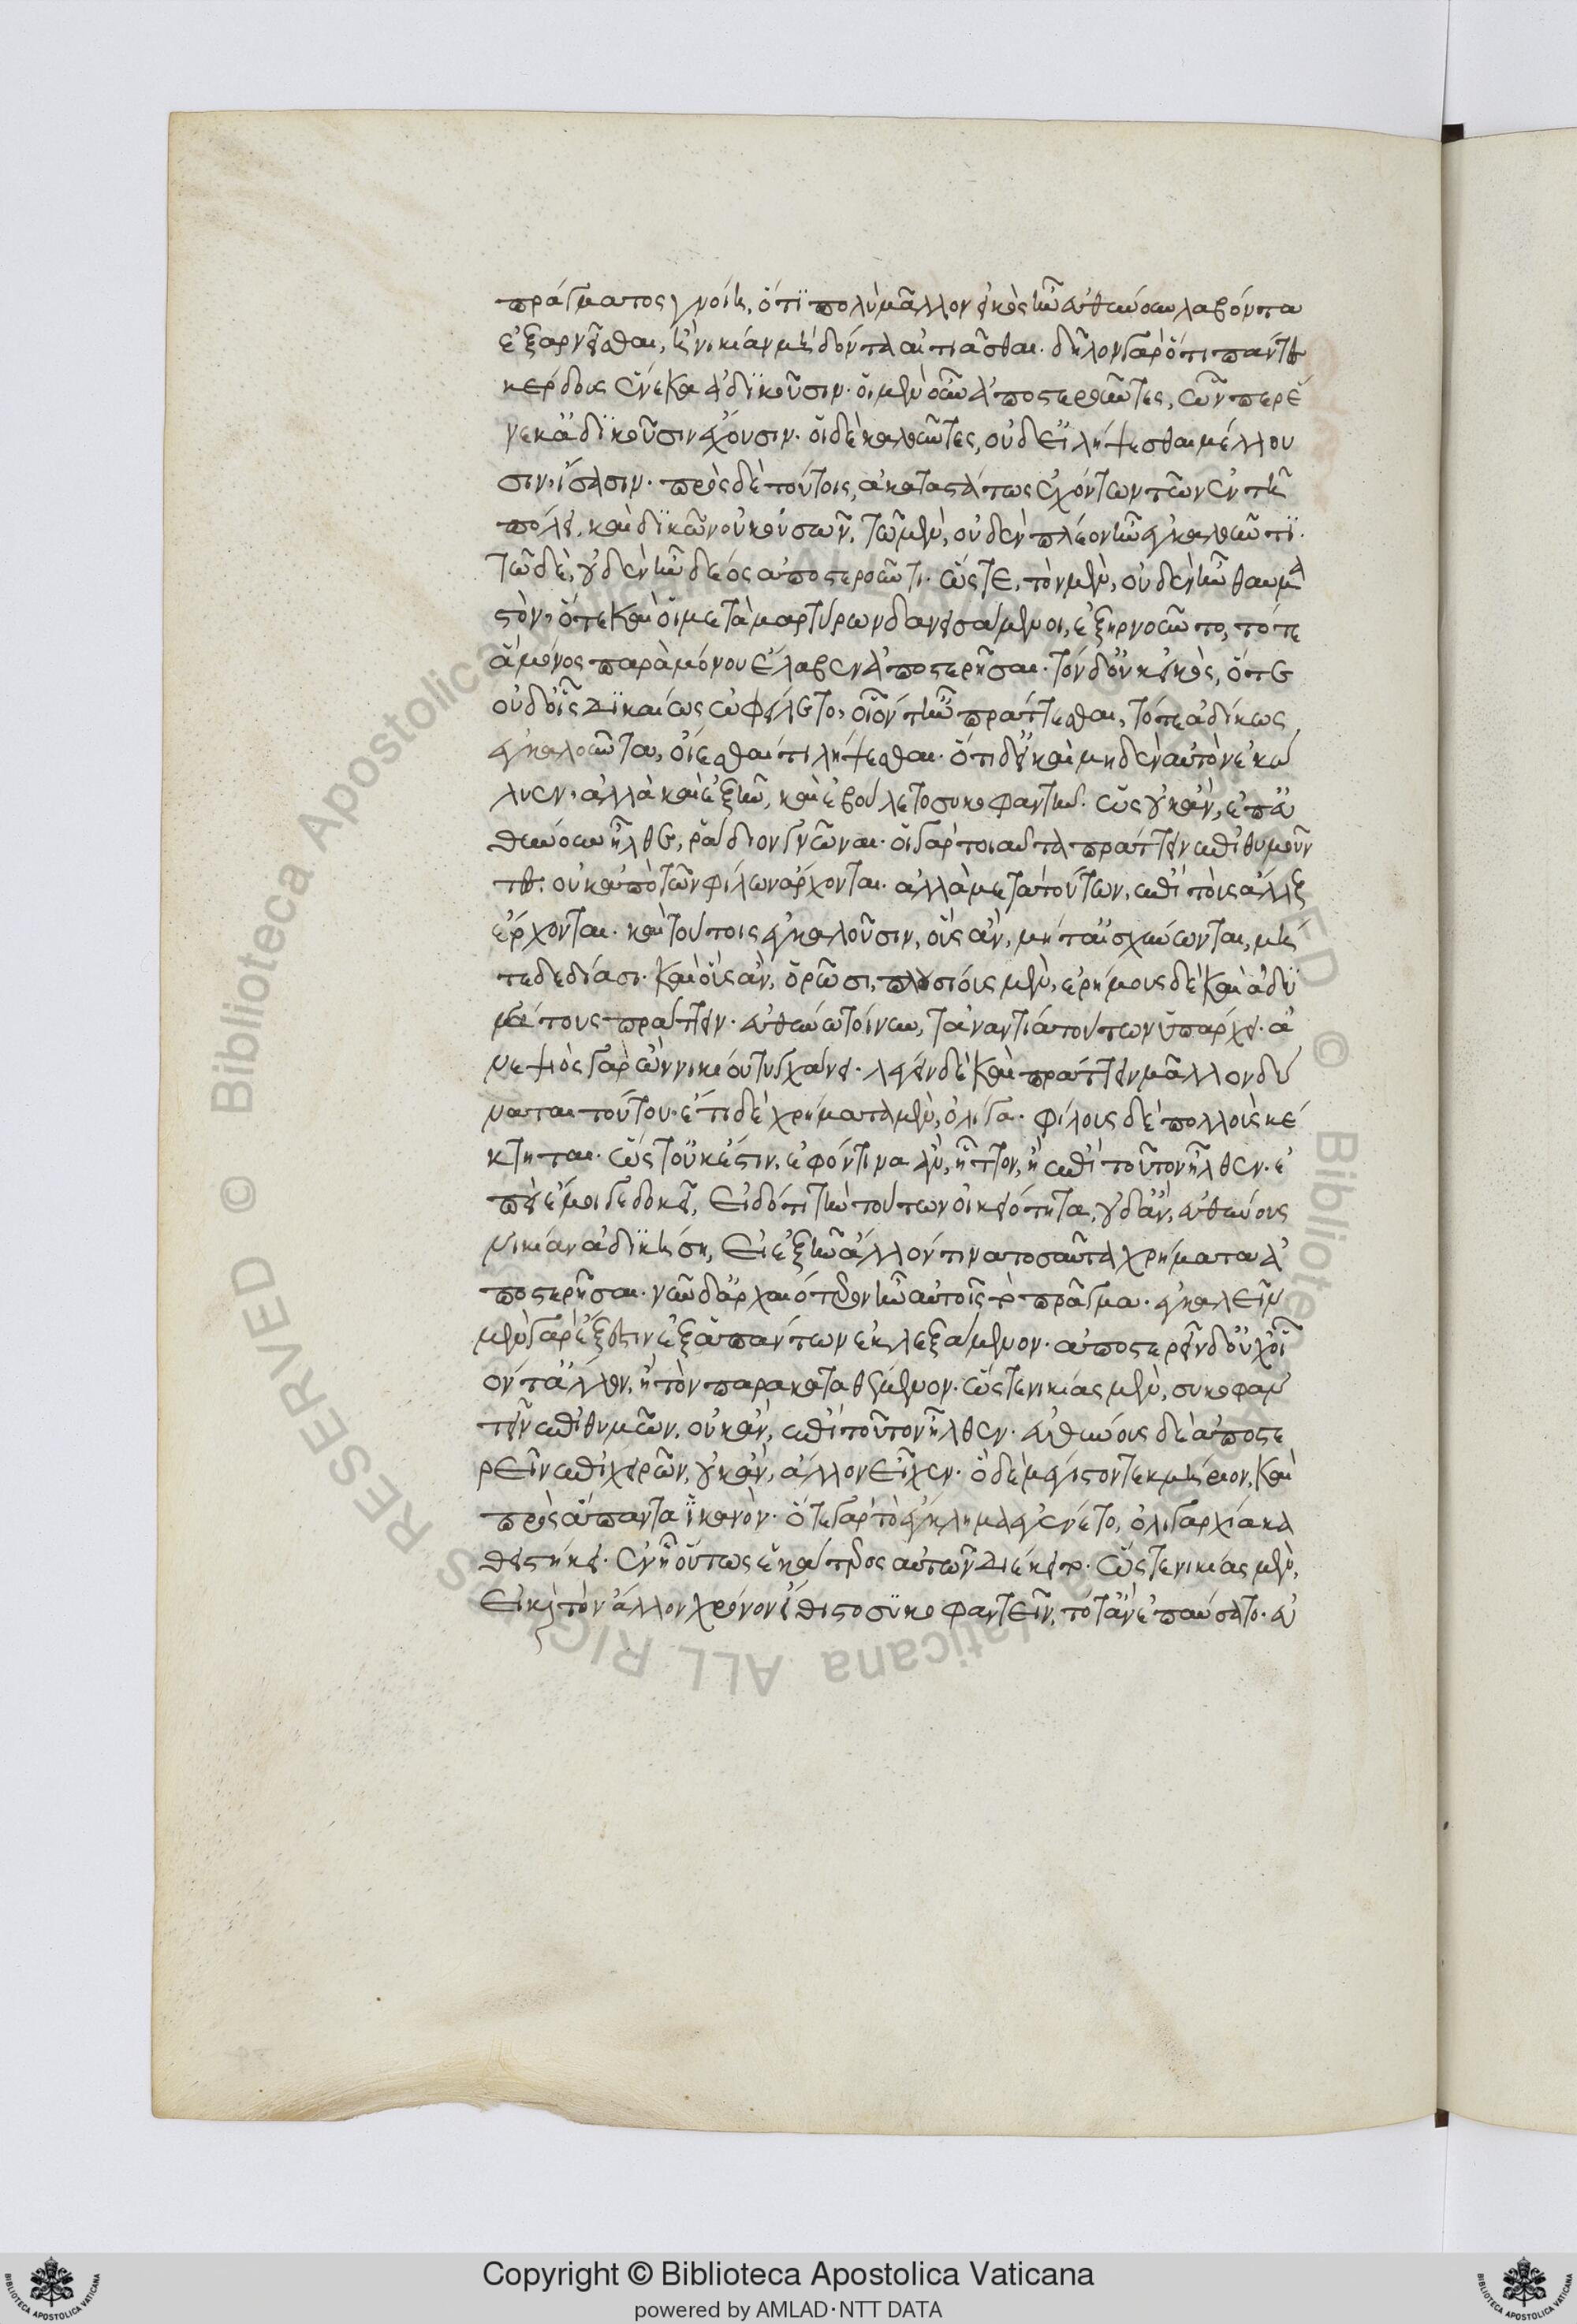 πράγματος γνοίη, ὅτι πολὺ μᾶλλον εἰκὸς ἦν εὐθύνουν λαβόντα
ἐξαρνεῖσθαι, ἢ νικίαν μὴ δόντα αἰτιᾶσθαι. δῆλον γὰρ ὅτι πάντες
κέρδους ἕνεκα ἀδικοῦσιν. οἱ μὲν οὖν ἀποστεροῦντες, ὧνπερ ἕ
νεκ' ἀδικοῦσιν ἔχουσιν. οἱ δὲ καλοῦντες, οὐδ' εἰ λήψεσθαι μέλλου
σιν, ἴσασιν. πρὸς δὲ τούτοις, ἀκαταστάτως ἐχόντων τῶν ἐν τῇ
πόλει, καὶ δικῶν οὐκ οὐσῶν, τῷ μὲν, οὐδὲν πλέον ἦν ἐγκαλοῦντι.
τῷ δὲ, οὐδὲν ἦν δέος ἀποστεροῦντι. ὥστε, τὸν μὲν, οὐδὲν ἦν θαυμα
στὸν, ὅτε καὶ οἱ μετὰ μαρτύρων δανεισάμενοι, ἐξηρνοῦντο, τότε
ἃ μόνος παρὰ μόνου ἔλαβεν ἀποστερῆσαι. τὸν δ' οὐκ εἰκὸς, ὅτε
οὐδ' οἷς δικαίως ὠφείλετο, οἷόν τ' ἦν πράττεσθαι, τότε ἀδίκως
ἐγκαλοῦντα, οἴεσθαί τι λήψεσθαι. ὅτι δ' εἰ καὶ μηδὲν αὐτὸν ἐκώ
λυεν, ἀλλὰ καὶ ἐξῆν, καὶ ἐβούλετο συκοφαντεῖν. ὡς οὐκ ἂν, ἐπ' εὐ
θύνουν ἦλθε, ῥάδιον γνῶναι. οἱ γὰρ τοιαῦτα πράττειν ἐπιθυμοῦν
τες. οὐκ ἀπὸ τῶν φίλων ἄρχονται. ἀλλὰ μετὰ τούτων, ἐπὶ τοὺς ἄλλους
ἔρχονται. καὶ τούτοις ἐγκαλοῦσιν, οὓς ἂν, μήτ' αἰσχύνωνται, μή
τε δεδίασι. καὶ οὓς ἂν, ὁρῶσι, πλουσίους μὲν, ἐρήμους δὲ καὶ ἀδυ
νάτους πράττειν. εὐθύνῳ τοίνυν, τἀναντία τούτων ὑπάρχει. ἀ
νεψιὸς γὰρ ὢν νικίου τυγχάνει. λέγειν δὲ καὶ πράττειν μᾶλλον δύ
ναται τούτου. ἔτι δὲ χρήματα μὲν, ὀλίγα. φίλους δὲ πολλοὺς κέ
κτηται. ὥστ' οὐκ ἔστιν, ἐφ' ὅντινα ἂν, ἧττον, ἢ ἐπὶ τοῦτον ἦλθεν. ἐ
πεὶ ἔμοιγε δοκεῖ, εἰδότι τὴν τούτων οἰκειότητα, οὐδ' ἂν, εὐθύνους
νικίαν ἀδικῆσαι, εἰ ἐξῆν ἄλλον τινὰ τοσαῦτα χρήματα ἀ
ποστερῆσαι. νῦν δ' ἀρχαιότερον ἦν αὐτοῖς τὸ πρᾶγμα. ἐγκαλεῖν
μὲν γὰρ ἔξεστιν ἐξ ἁπάντων ἐκλεξάμενον. ἀποστερεῖν δ' οὐχ οἷ
όν τ' ἄλλον, ἢ τὸν παρακαταθέμενον. ὥστε νικίας μὲν, συκοφαν
τεῖν ἐπιθυμῶν, οὐκ ἂν, ἐπὶ τοῦτον ἦλθεν. εὐθύνους δὲ ἀποστε
ρεῖν ἐπιχειρῶν, οὐκ ἂν, ἄλλον εἶχεν. ὃ δὲ μέγιστον τεκμήριον, καὶ
πρὸς ἅπαντα ἱκανόν. ὅτε γὰρ τὸ ἔγκλημα ἐγένετο, ὀλιγαρχία κα
θειστήκει. ἐν ᾗ οὕτως ἑκάτερος αὐτῶν διέκειτο. ὥστε νικίας μὲν,
εἰ καὶ τὸν ἄλλον χρόνον εἴθιστο συκοφαντεῖν, τότ' ἂν ἐπαύσατο. εὐ
Copyright © Biblioteca Apostolica Vaticana
powered by AMLAD·NTT DATA